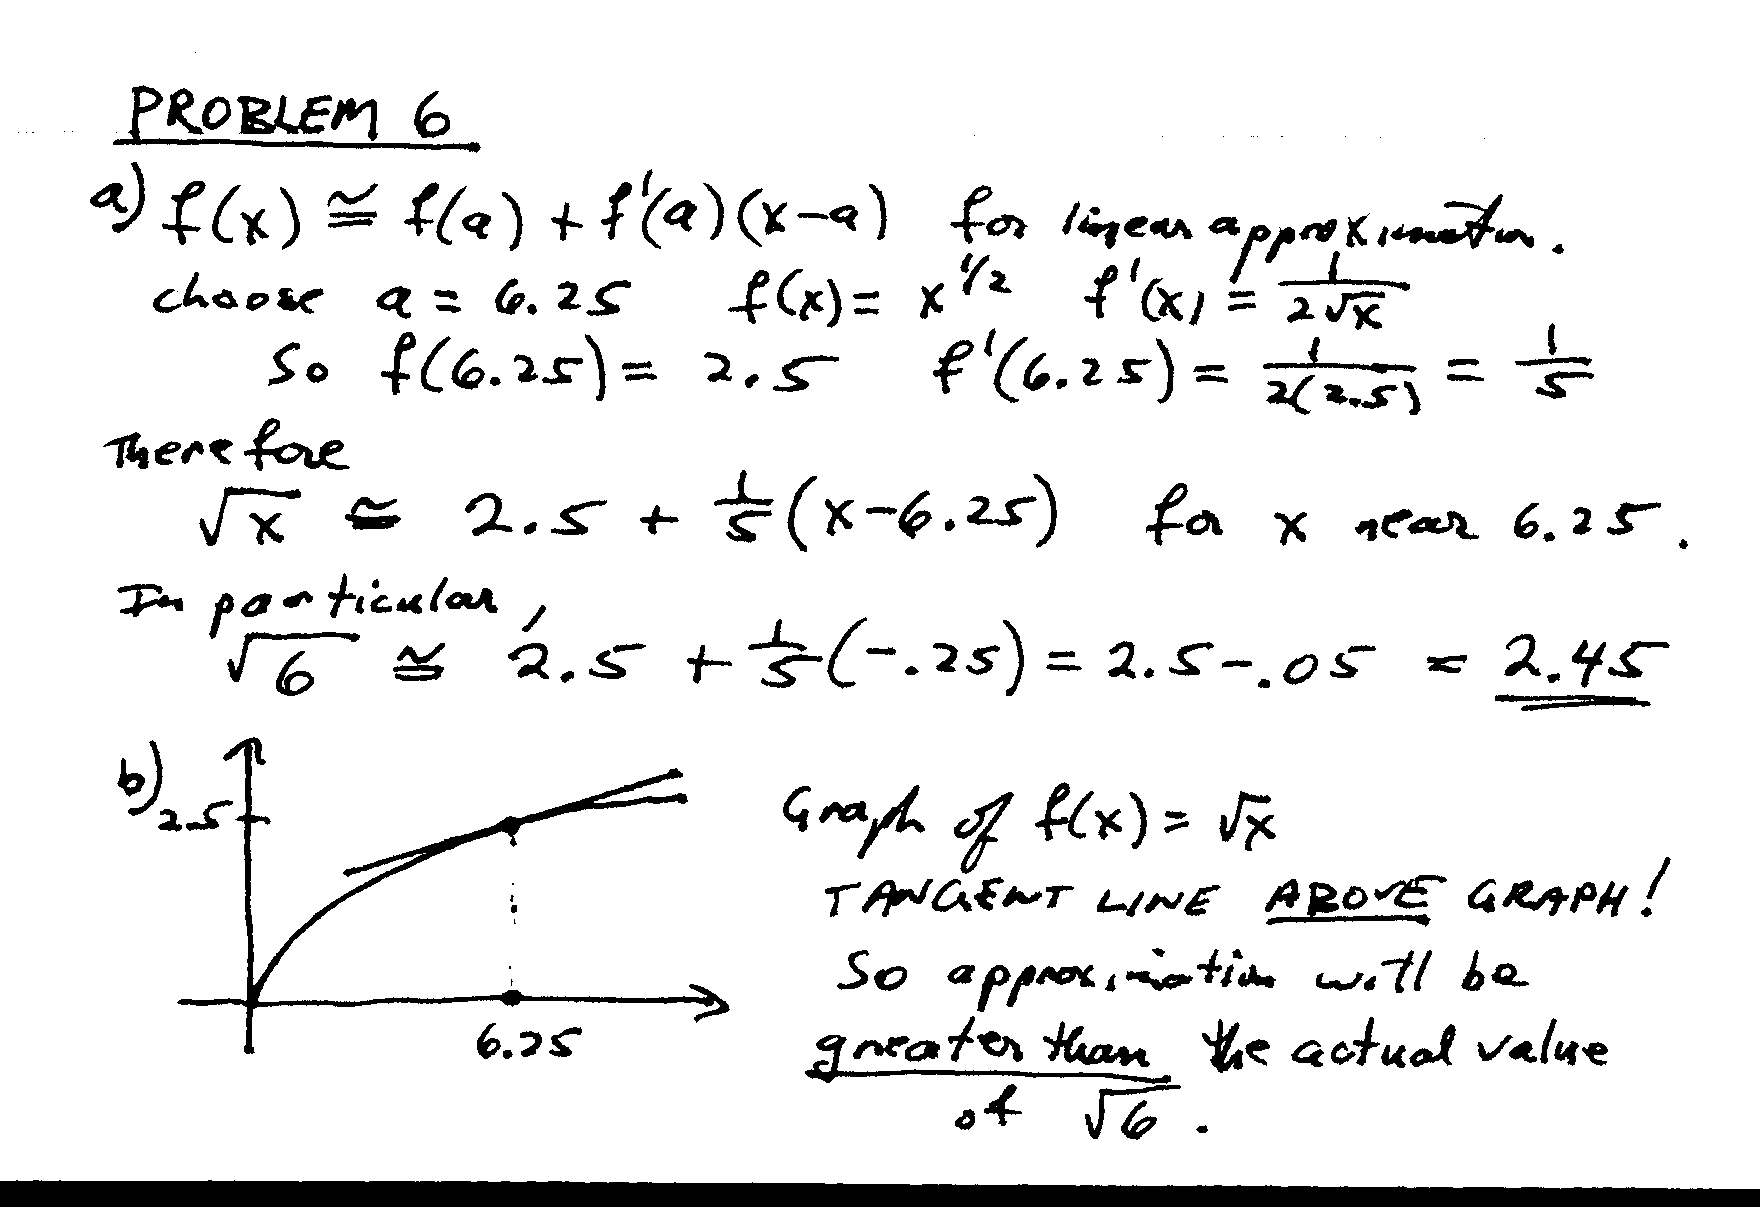 PROBLEM 6
a) f(x) ≅ f(a) + f'(a)(x-a) for linear approximation.
choose a = 6.25 f(x) = x^1/2 f'(x) = 1/(2√x)
So f(6.25) = 2.5 f'(6.25) = 1/(2(2.5)) = 1/5
Therefore
√x ≅ 2.5 + 1/5(x-6.25) for x near 6.25.
In particular,
√6 ≅ 2.5 + 1/5(-.25) = 2.5-.05 = 2.45
b)
2.5
6.25
Graph of f(x) = √x
TANGENT LINE ABOVE GRAPH!
So approximation will be
greater than the actual value
of √6.